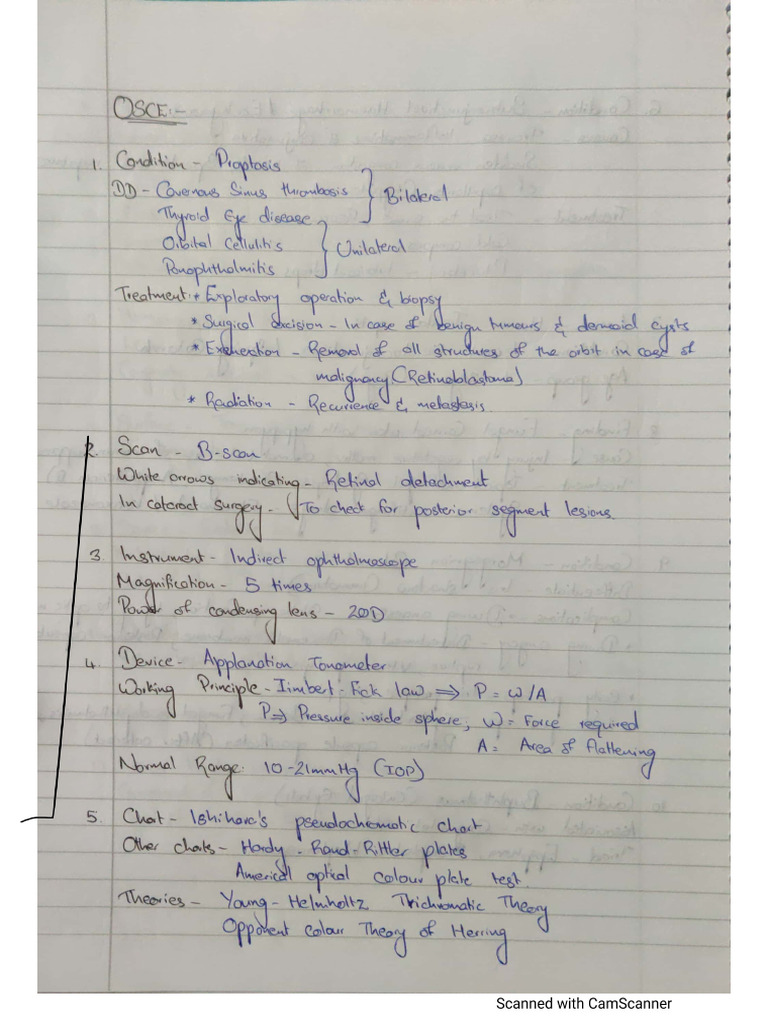 OSCE:-
1. Condition - Proptosis
DD - Covernous Sinus thrombosis } Bilateral
Thyroid Eye disease
Orbital Cellulitis } Unilateral
Panophthalmitis
Treatment: * Exploratory operation & biopsy
* Surgical excision - In case of benign tumours & dermoid cysts
* Exenteration - Removal of all structures of the orbit in case of
malignancy (Retinoblastoma)
* Radiation - Recurrence & metastasis.
2. Scan - B-scan
White arrows indicating - Retinal detachment
In cataract surgery - To check for posterior segment lesions.
3. Instrument - Indirect ophthalmoscope
Magnification - 5 times
Power of condensing lens - 20D
4. Device - Applanation Tonometer
Working Principle - Iimbert-Fick law ⇒ P = W/A
P ⇒ Pressure inside sphere, W = Force required
A = Area of flattening
Normal Range: 10-21mmHg (IOP)
5. Chart - Ishihara's pseudochromatic chart
Other charts - Hardy-Rand-Rittler plates
American optical colour plate test.
Theories - Young-Helmholtz Trichromatic Theory
Opponent colour Theory of Herring
Scanned with CamScanner